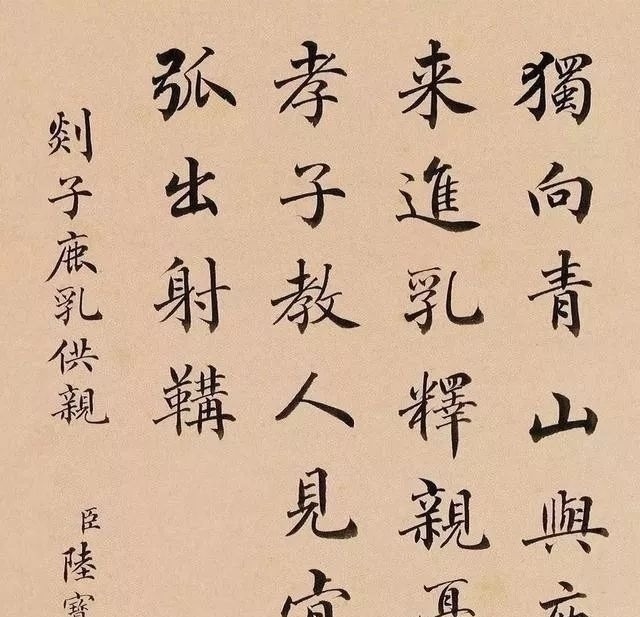 獨向青山與
来進乳釋親
孝子教人見
弧出射鞲
剡子鹿乳供親
臣陸